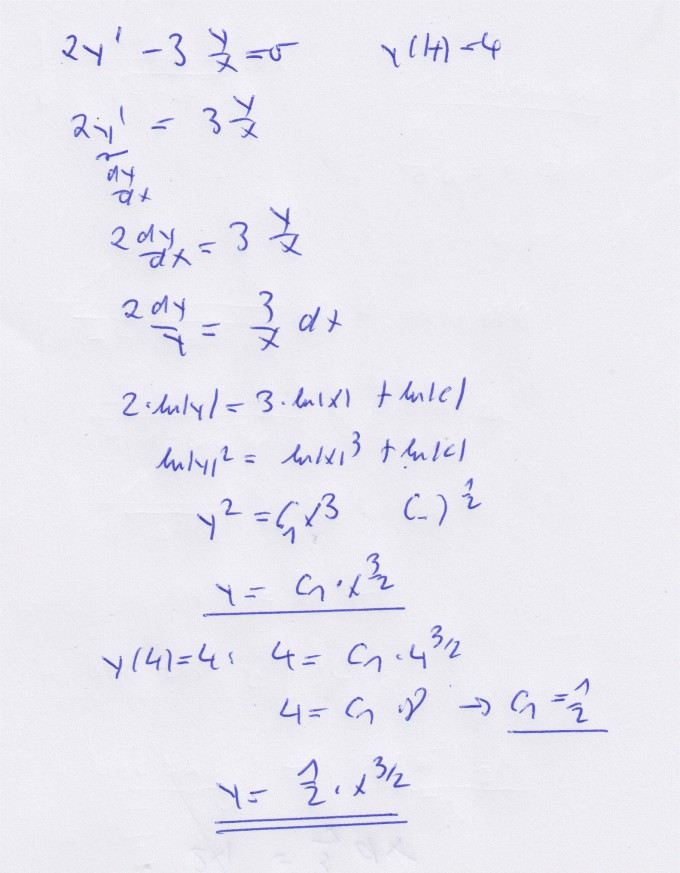 2y' - 3 y/x = 0 y(4) = 4
2y' = 3 y/x
dy/dx
2 dy/dx = 3 y/x
2 dy/y = 3/x dx
2·ln|y| = 3·ln|x| + ln|c|
ln|y|² = ln|x|³ + ln|c|
y² = C₁x³ (–)^1/2
y = C₁·x^3/2
y(4)=4: 4 = C₁·4^3/2
4 = C₁·8 → C₁ = 1/2
y = 1/2·x^3/2